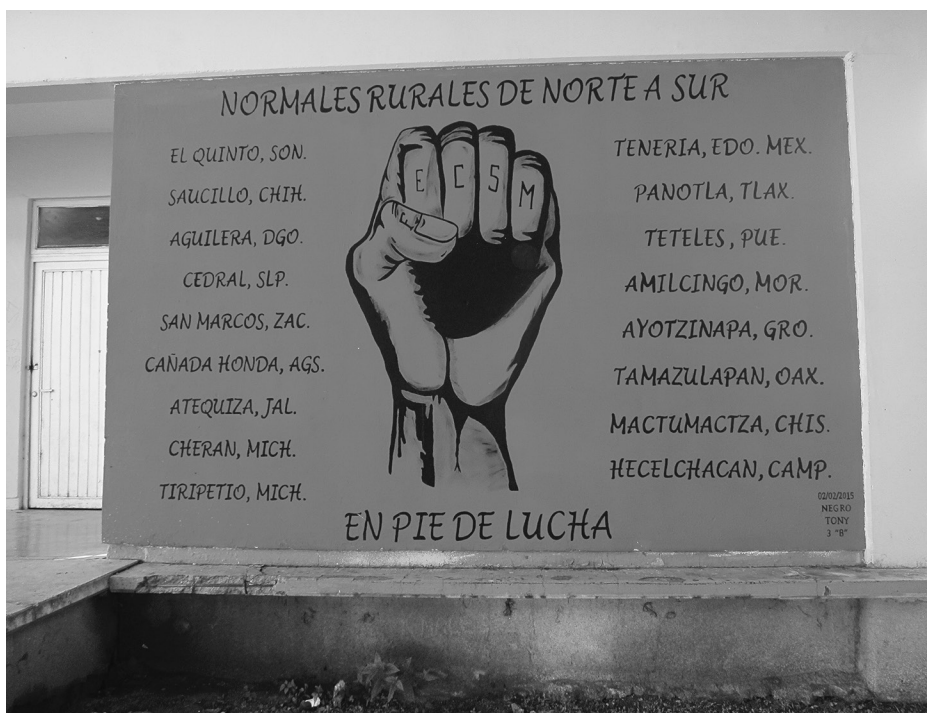 NORMALES RURALES DE NORTE A SUR
EL QUINTO, SON.
SAUCILLO, CHIH.
AGUILERA, DGO.
CEDRAL, SLP.
SAN MARCOS, ZAC.
CAÑADA HONDA, AGS.
ATEQUIZA, JAL.
CHERAN, MICH.
TIRIPETIO, MICH.
E C S M
TENERIA, EDO. MEX.
PANOTLA, TLAX.
TETELES, PUE.
AMILCINGO, MOR.
AYOTZINAPA, GRO.
TAMAZULAPAN, OAX.
MACTUMACTZA, CHIS.
HECELCHACAN, CAMP.
02/02/2015
NEGRO
TONY
3 "B"
EN PIE DE LUCHA